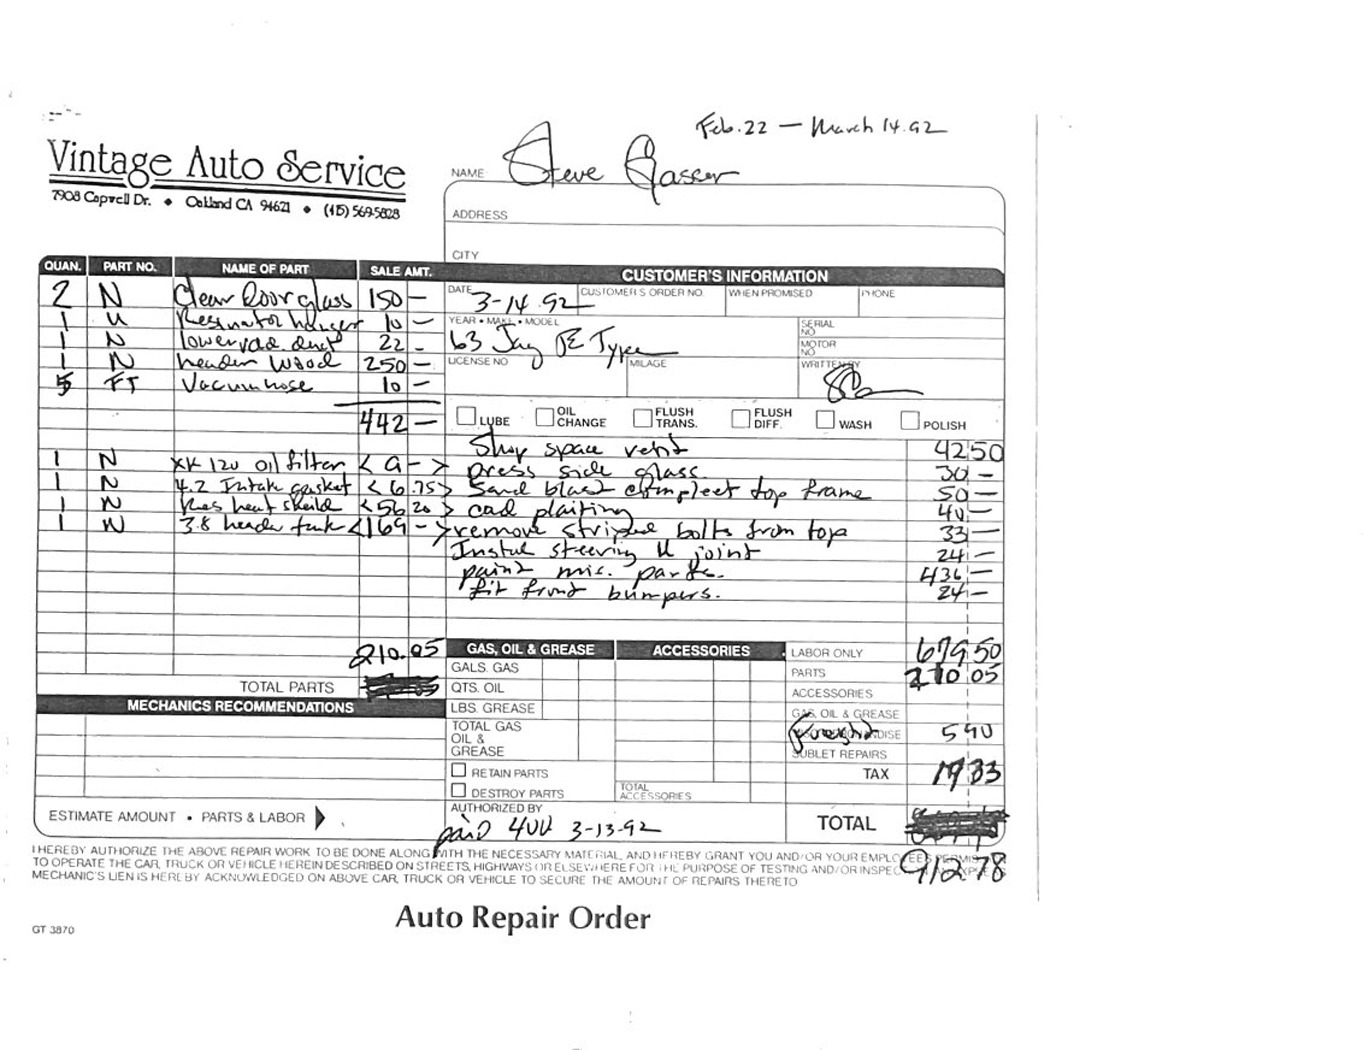 Feb. 22 — March 14. 92
Vintage Auto Service
7908 Capwell Dr. • Oakland CA 94621 • (415) 569-5828
NAME Steve Gasser
ADDRESS
CITY
QUAN. PART NO. NAME OF PART SALE AMT. CUSTOMER'S INFORMATION
2 N Clear Door glass 150 —
DATE 3-14.92 CUSTOMER'S ORDER NO. WHEN PROMISED PHONE
1 U Resinator hanger 10 —
YEAR • MAKE • MODEL 63 Jag E Type SERIAL NO MOTOR NO
1 N lower rad duct 22 –
1 N header wood 250 —
LICENSE NO MILAGE WRITTEN BY
5 FT Vacuum hose 10 —
442 —
LUBE OIL CHANGE FLUSH TRANS. FLUSH DIFF. WASH POLISH
Shop space rent 42 50
1 N XK 120 oil filter < 9 — > press side glass 30 —
1 N 4.2 Intake gasket < 6.75 > Sand blast compleet top frame 50 —
1 N Res heat sheild < 56 20 > cad plaiting 40 —
1 N 3.8 header tank < 169 — > remove striped bolts from top 33 —
Instal steering U joint 24 —
paint mis. parts. 436 —
fit front bumpers. 24 —
210.05 GAS, OIL & GREASE ACCESSORIES LABOR ONLY 679 50
GALS. GAS PARTS 210 05
TOTAL PARTS QTS. OIL ACCESSORIES
MECHANICS RECOMMENDATIONS LBS. GREASE GAS, OIL & GREASE
TOTAL GAS OIL & GREASE Freight 5 90
SUBLET REPAIRS
RETAIN PARTS TAX 19 33
DESTROY PARTS TOTAL ACCESSORIES
ESTIMATE AMOUNT • PARTS & LABOR AUTHORIZED BY TOTAL
paid 400 3-13-92
912 78
I HEREBY AUTHORIZE THE ABOVE REPAIR WORK TO BE DONE ALONG WITH THE NECESSARY MATERIAL, AND HEREBY GRANT YOU AND/OR YOUR EMPLOYEES
TO OPERATE THE CAR, TRUCK OR VEHICLE HEREIN DESCRIBED ON STREETS, HIGHWAYS OR ELSEWHERE FOR THE PURPOSE OF TESTING AND/OR
MECHANIC'S LIEN IS HEREBY ACKNOWLEDGED ON ABOVE CAR, TRUCK OR VEHICLE TO SECURE THE AMOUNT OF REPAIRS THERETO
Auto Repair Order
GT 3870